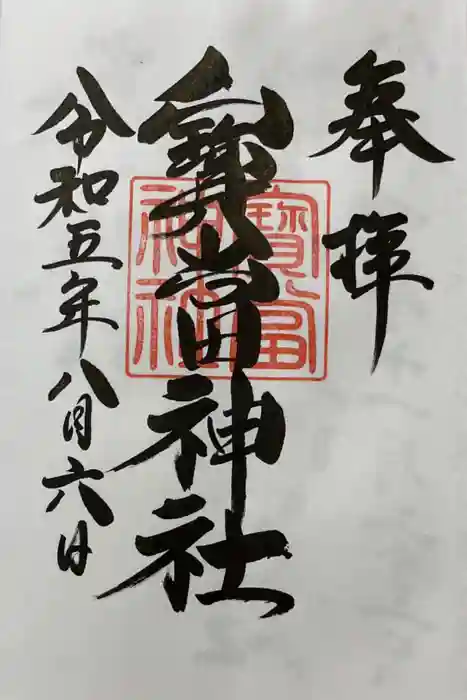 奉拝
寳當神社
令和五年八月六日
寳當
神社